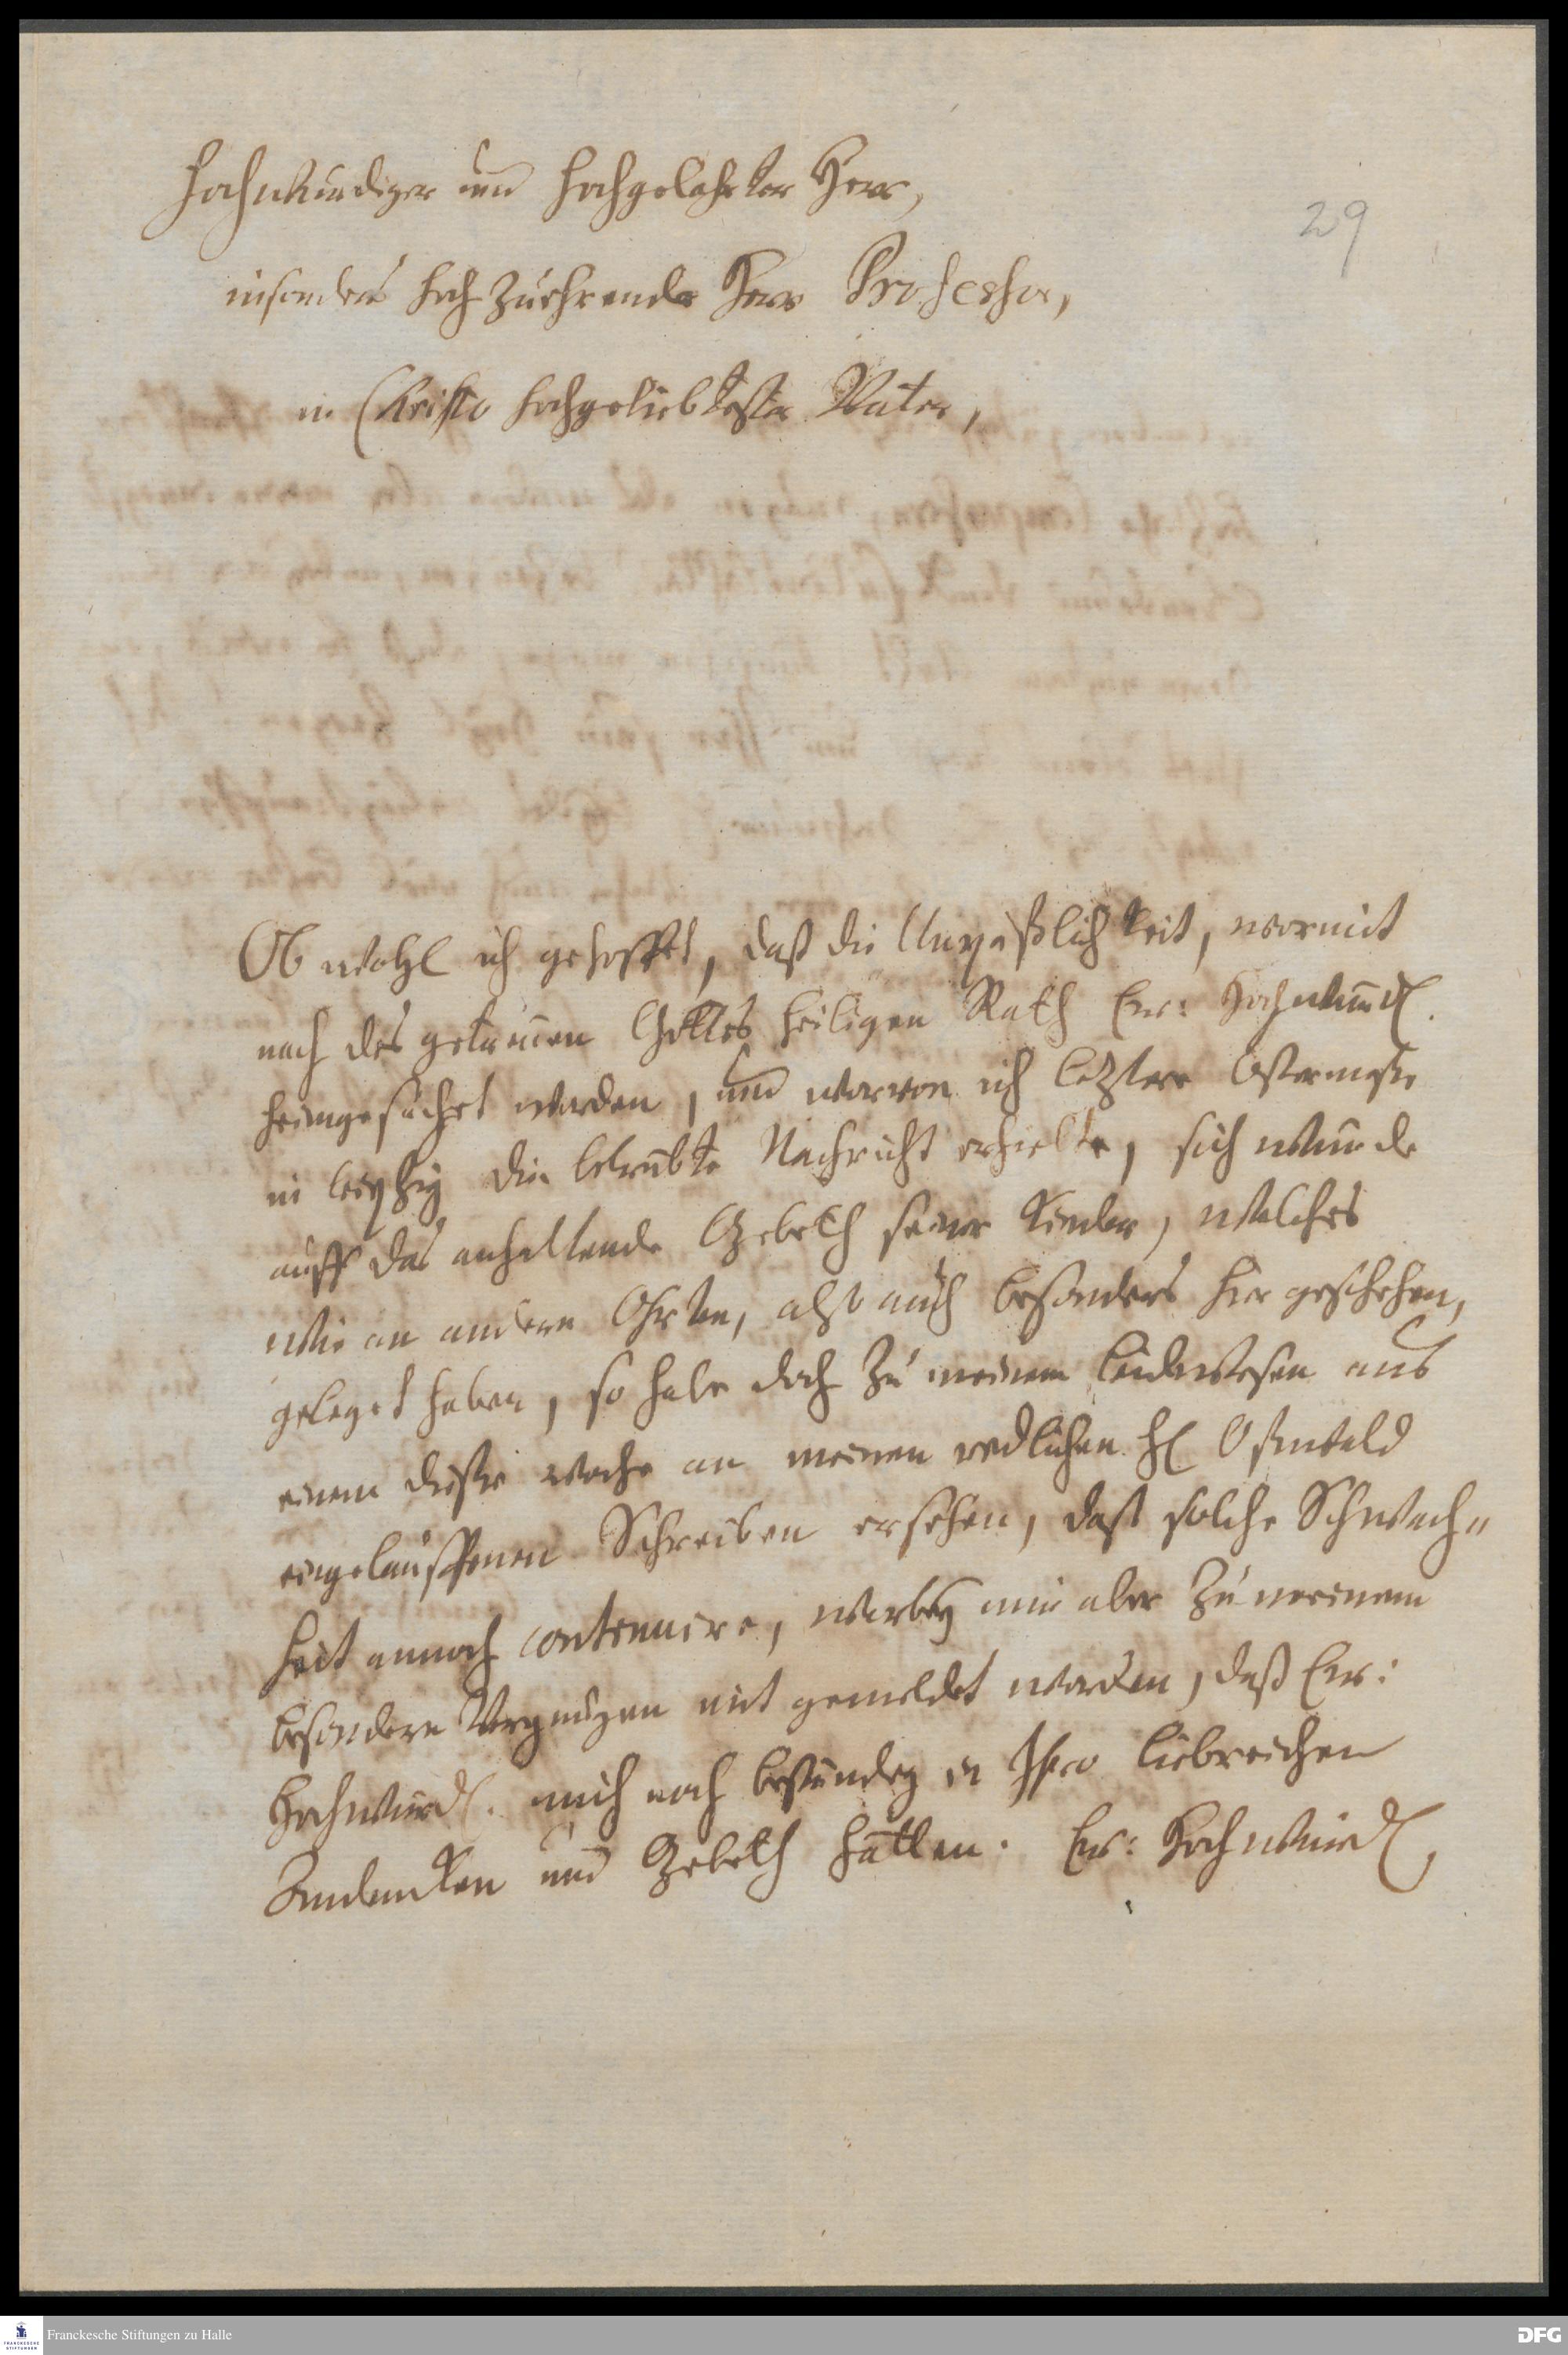 Hochwürdiger und Hochgelahrter Herr,
29
insonders hoch zuehrender Herr Professor,
in Christo hochgeliebtester Vater,
Ob wohl ich gehoffet, daß die Unpäßlichkeit, wormit
nach des getreuen Gottes heiligen Rath Ew: Hochwürd.
heimgesuchet worden, und worvon ich letztere Ostermeße
in Leipzig die betrübte Nachricht erhielte, sich würde
auff das anhaltende Gebeth seiner Kinder, welches
wie an andern Ohrten, also auch besonders hier geschehen,
geleget haben, so habe doch zu meinem Leidwesen aus
einem diese woche an meinen redlichen H
eingelauffenen Schreiben ersehen, daß solche Schwach=
heit annoch continuire, worbey mir aber zu meinem
besondern Vergnügen mit gemeldet worden, daß Ew:
Hochwürd. mich noch beständig in Ihro liebreichen
Andencken und Gebeth hätten. Ew: Hochwürd
Franckesche Stiftungen zu Halle
FRANCKESCHE
STIFTUNGEN
DFG